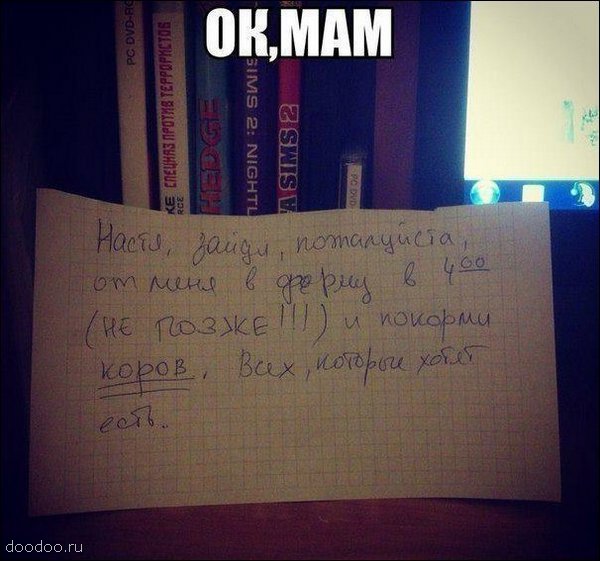 ОК,МАМ
PC DVD-RO
СПЕЦНАЗ ПРОТИВ ТЕРРОРИСТОВ
HEDGE
SIMS 2: NIGHTL
SIMS 2
PC DVD
Настя, зайди, пожалуйста,
от меня в ферму в 4 00
(НЕ ПОЗЖЕ!!!) и покорми
коров. Всех, которые хотят
есть.
doodoo.ru